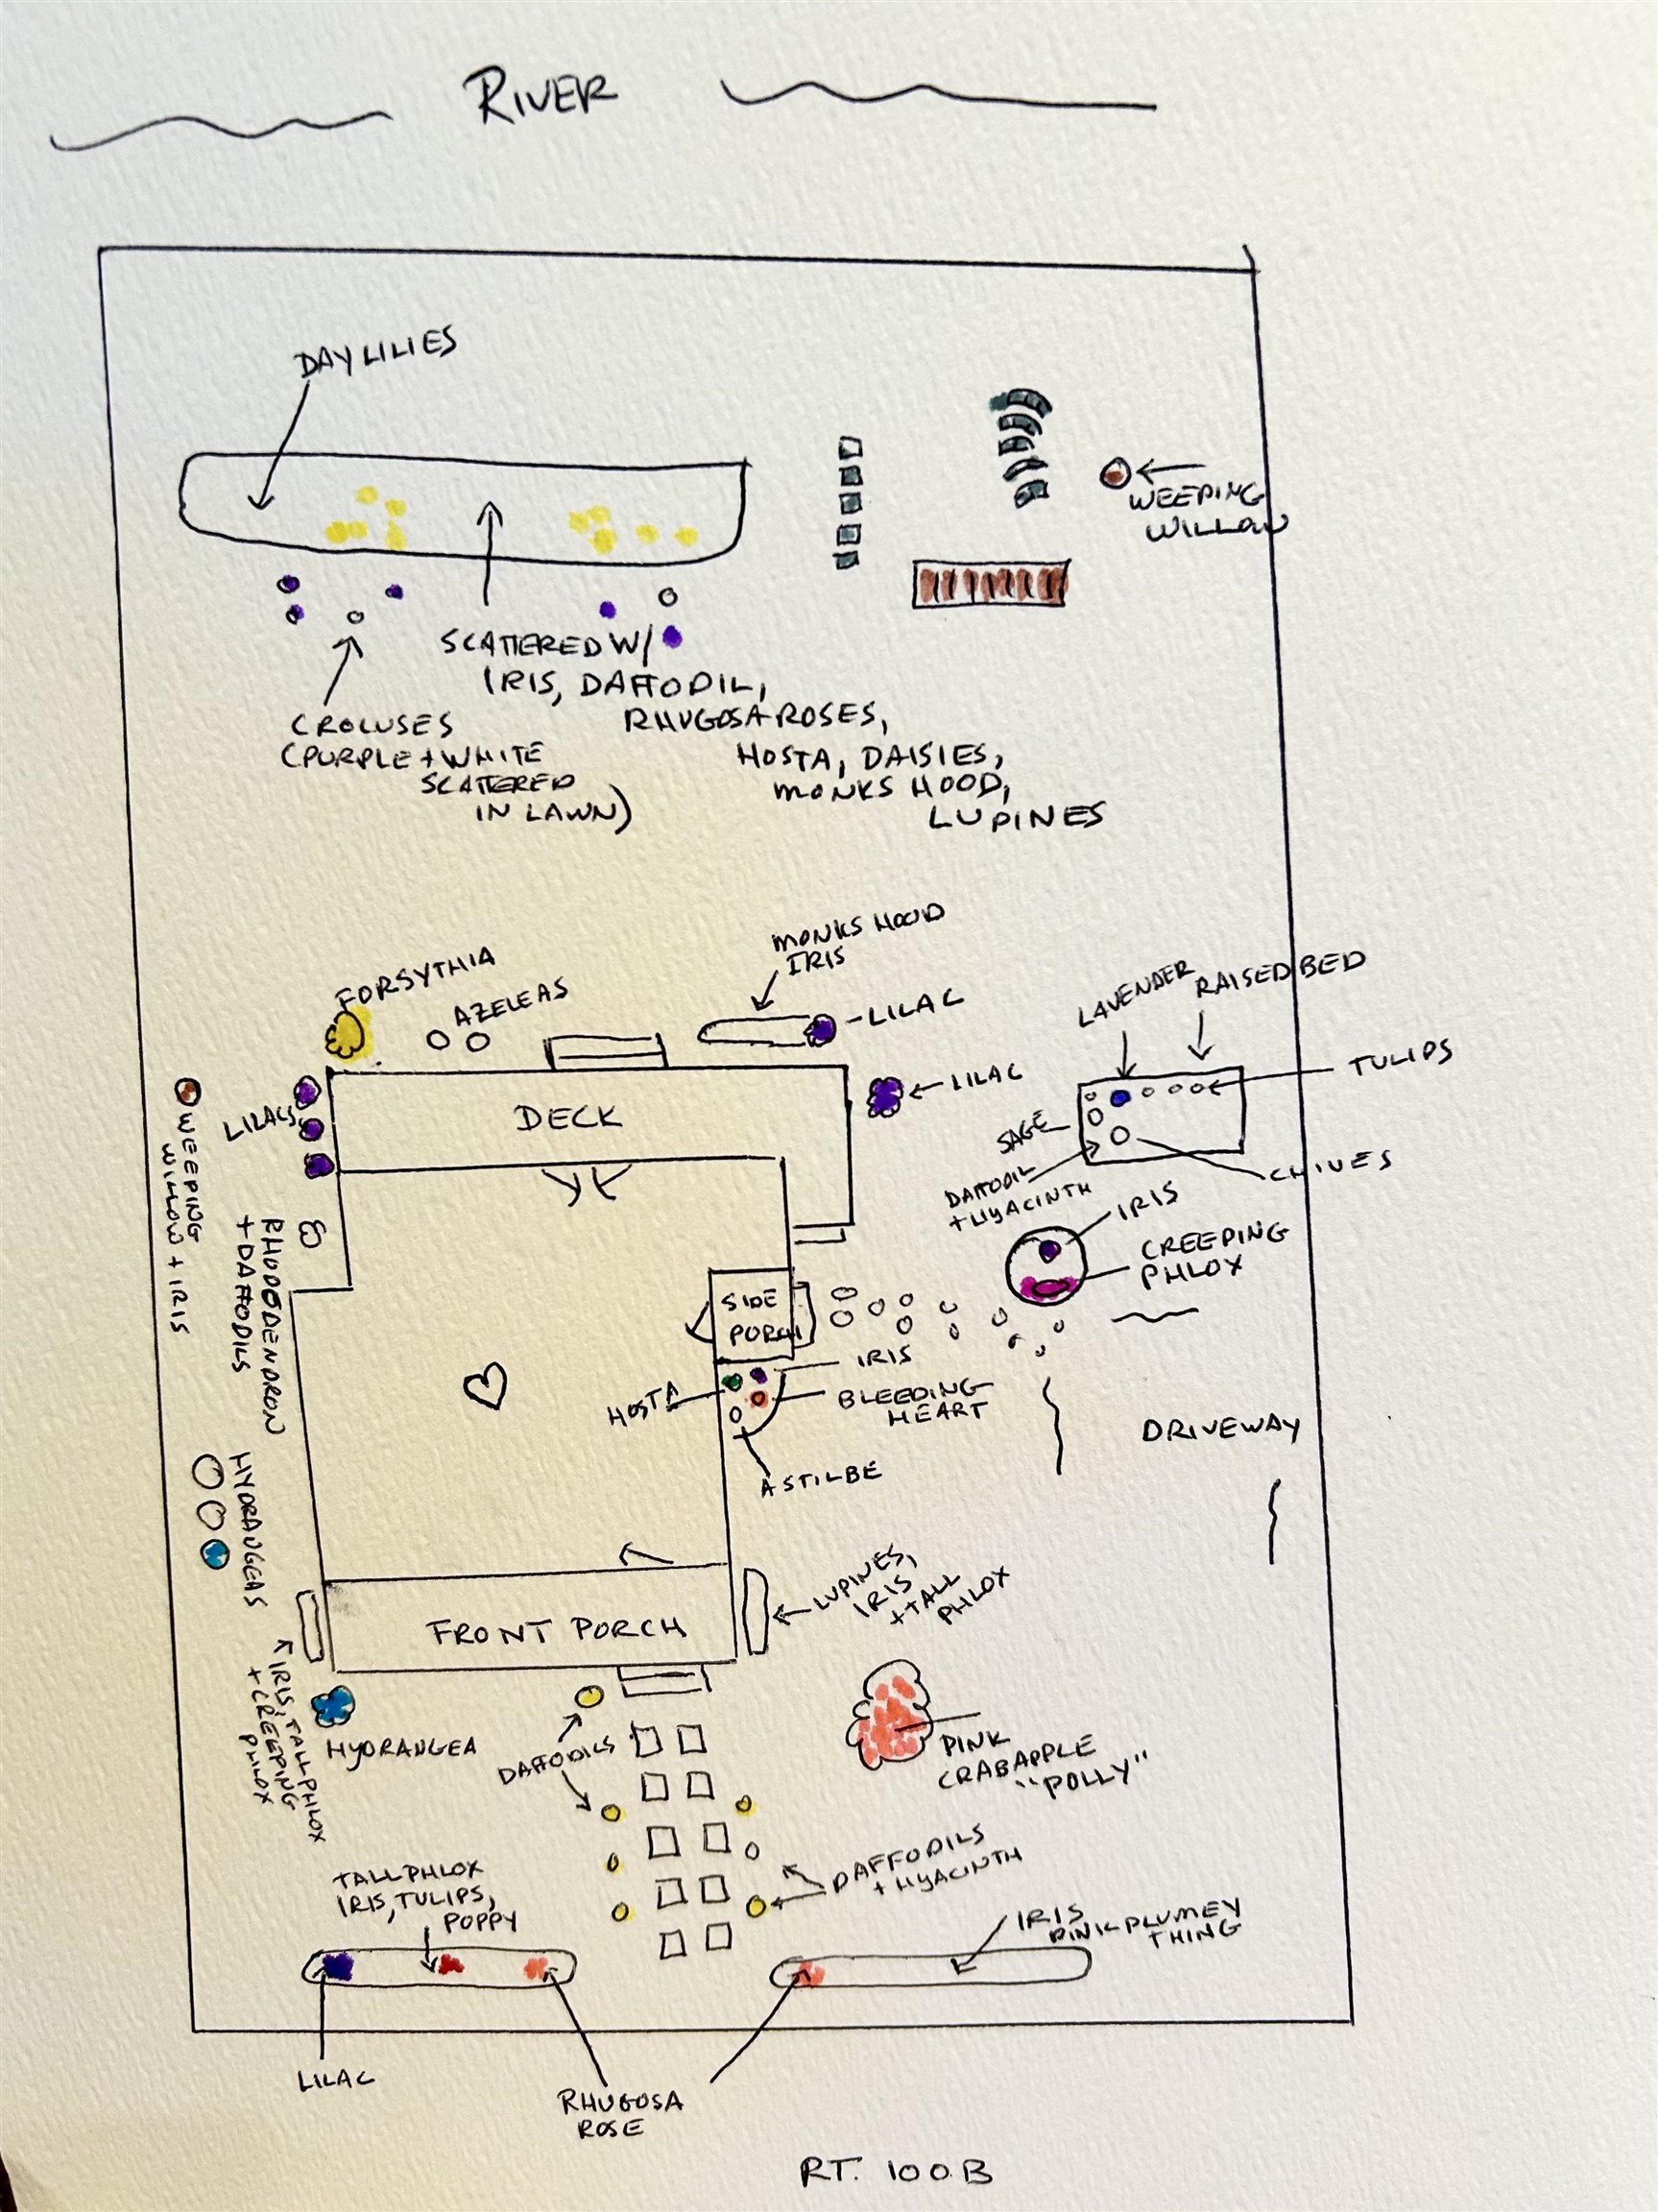 RIVER
DAYLILIES
WEEPING
WILLOW
SCATTERED W/
IRIS, DAFFODIL,
RHUGOSA ROSES,
HOSTA, DAISIES,
MONKS HOOD,
LUPINES
CROCUSES
(PURPLE + WHITE
SCATTERED
IN LAWN)
FORSYTHIA
AZELEAS
MONKS HOOD
IRIS
-LILAC
LAVENDER
RAISED BED
LILAC
TULIPS
DECK
LILACS
SAGE
CHIVES
DAFFODIL
+ HYACINTH
WEEPING
WILLOW + IRIS
RHODODENDRON
+ DAFFODILS
IRIS
CREEPING
PHLOX
SIDE
PORCH
IRIS
HOSTA
BLEEDING
HEART
ASTILBE
DRIVEWAY
HYDRANGEAS
LUPINES,
IRIS
+ TALL
PHLOX
FRONT PORCH
IRIS, TALL PHLOX
+ CREEPING
PHLOX
HYDRANGEA
DAFFODILS
PINK
CRABAPPLE
"POLLY"
DAFFODILS
+ HYACINTH
TALL PHLOX
IRIS, TULIPS,
POPPY
IRIS
PINK PLUMEY
THING
LILAC
RHUGOSA
ROSE
RT. 100B